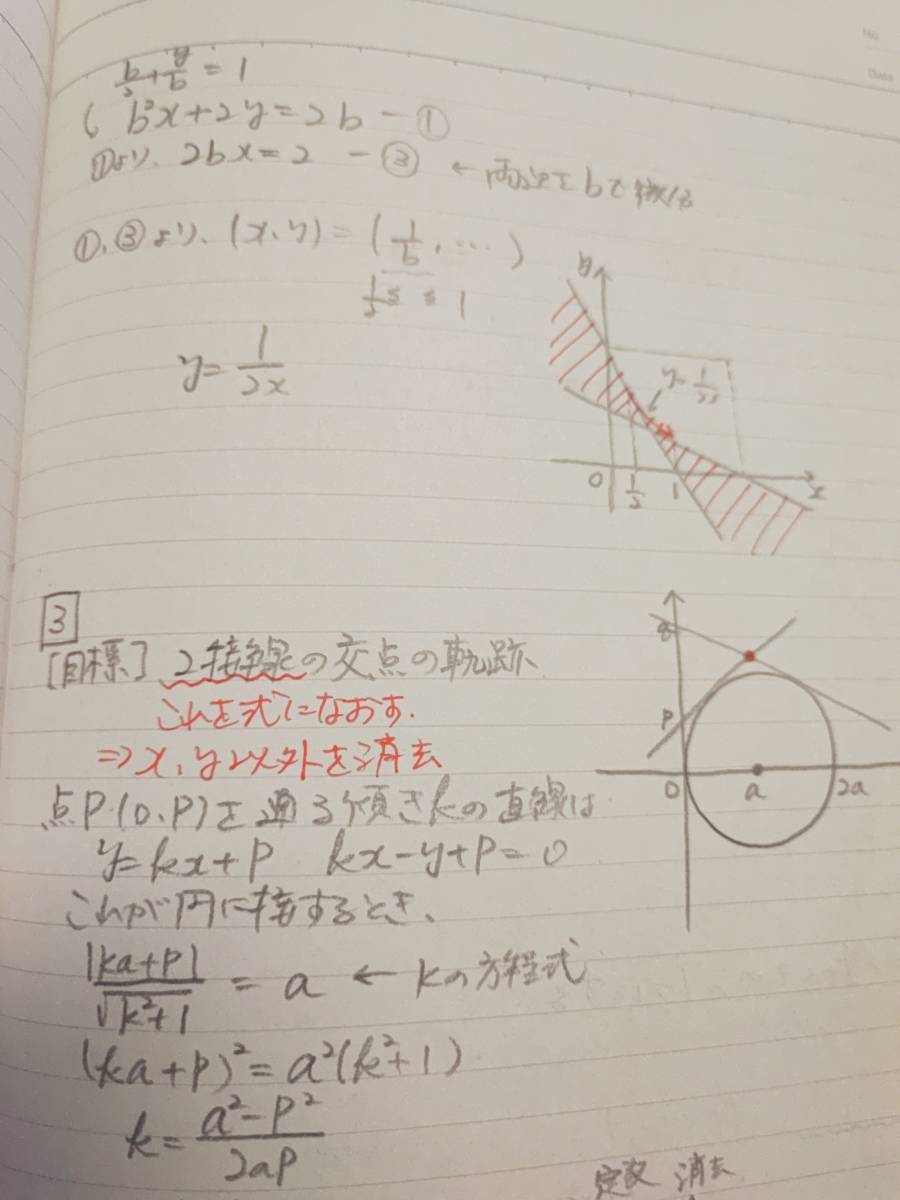 b/2+y/b=1
b²x+2y=2b-①
①より、2bx=2 -③ ←両辺をbで微分
①、③より、(x、y)=(1/b,…)
1/2≦ ≦1
y=1/2x
y
y=1/2x
0 1/2 1 x
3
[目標] 2接線の交点の軌跡
これを式になおす.
⇒x、y以外を消去
点P(0、P)を通る傾きkの直線は
y=kx+P kx-y+P=0
これが円に接するとき、
|ka+P|/√k²+1 = a ← kの方程式
(ka+p)²=a²(k²+1)
k=a²-P²/2aP
q
P
0 a 2a
定数 消去